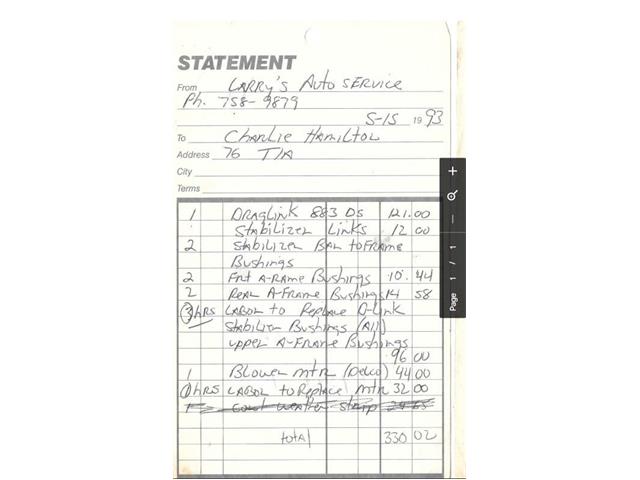 STATEMENT
From LARRY'S AUTO SERVICE
Ph. 758-9879
5-15 1993
To CHARLIE HAMILTON
Address 76 T/A
City
Terms
1 DRAGLINK 883 DS 121.00
STABILIZER LINKS 12 00
2 STABILIZER BAR TO FRAME
Bushings
2 Frt A-RAME Bushings 10. 44
2 REAR A-FRAME Bushings 14 58
3 hRS LABOR to Replace D-Link
Stabilizer Bushings (All)
upper A-Frame Bushings
96 00
1 Blower mtr (Delco) 44 00
1 hRS LABOR to Replace mtr 32 00
weather strip
total 330 02
Page 1 / 1